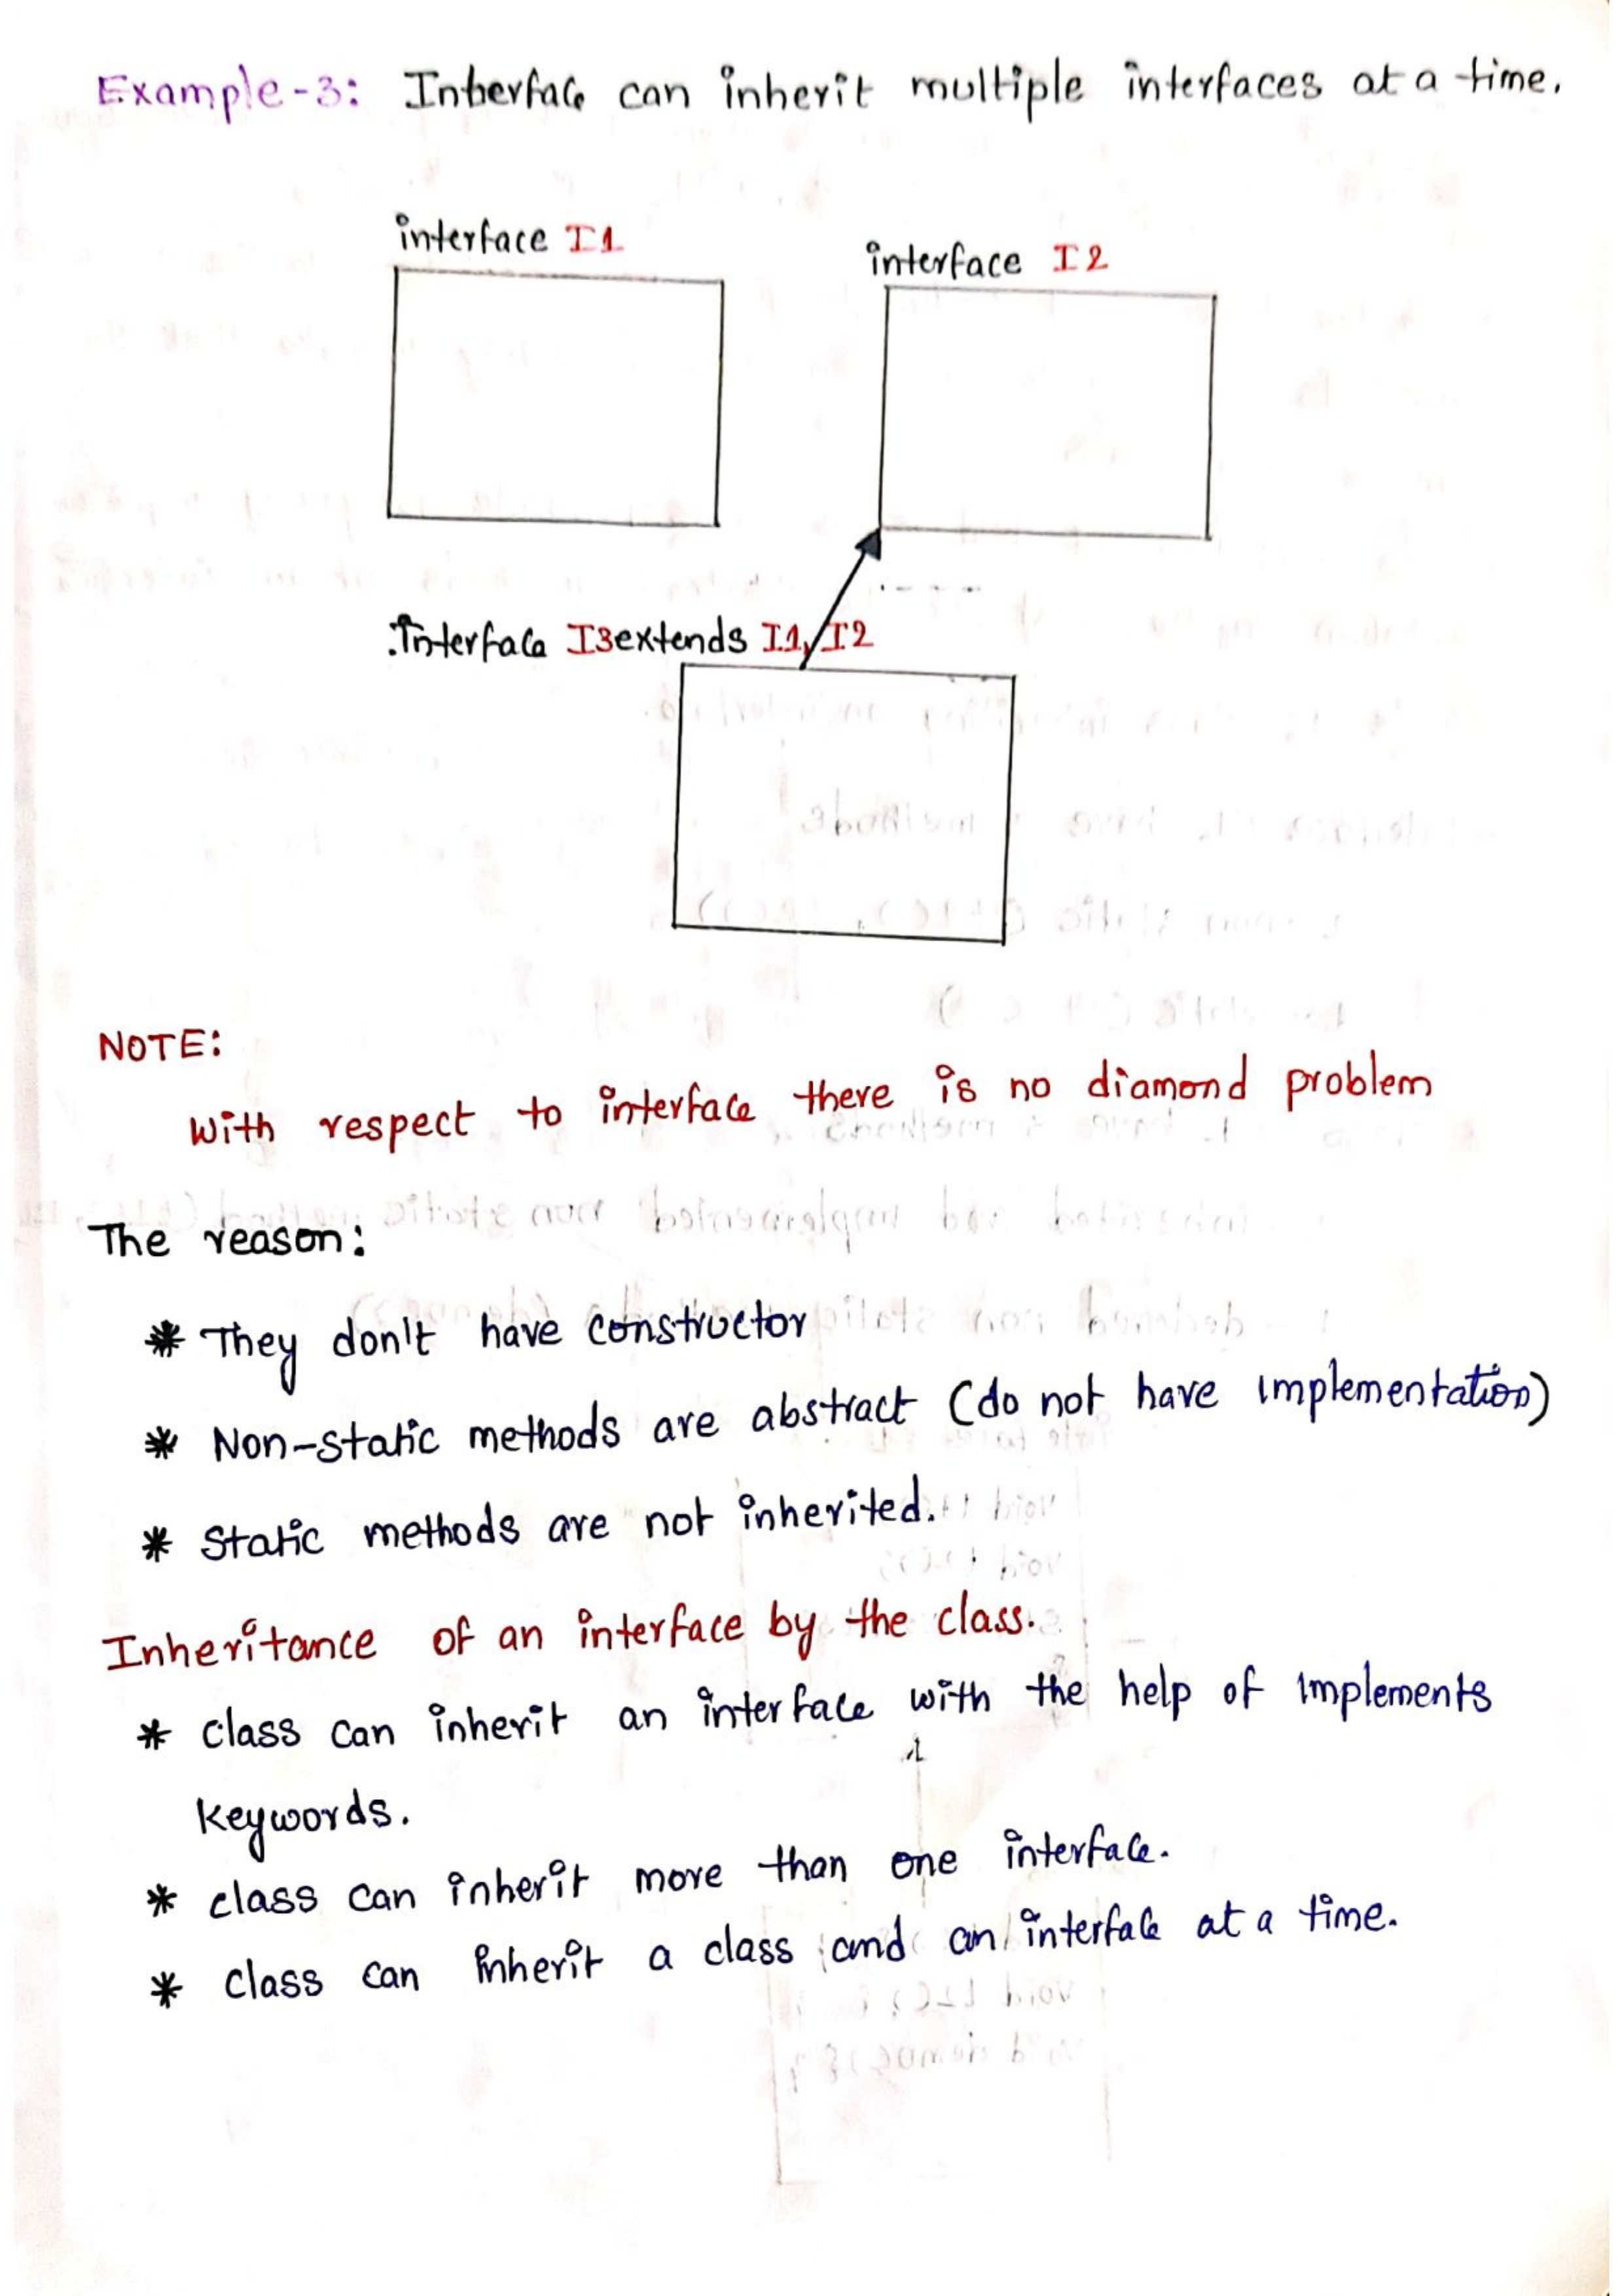 Example-3: Interface can inherit multiple interfaces at a time.
interface I1
interface I2
Interface I3 extends I1, I2
NOTE:
With respect to interface there is no diamond problem
The reason:
* They don't have constructor
* Non-static methods are abstract (do not have implementation)
* Static methods are not inherited.
Inheritance of an interface by the class.
* class can inherit an interface with the help of implements
keywords.
* class can inherit more than one interface.
* class can inherit a class and an interface at a time.